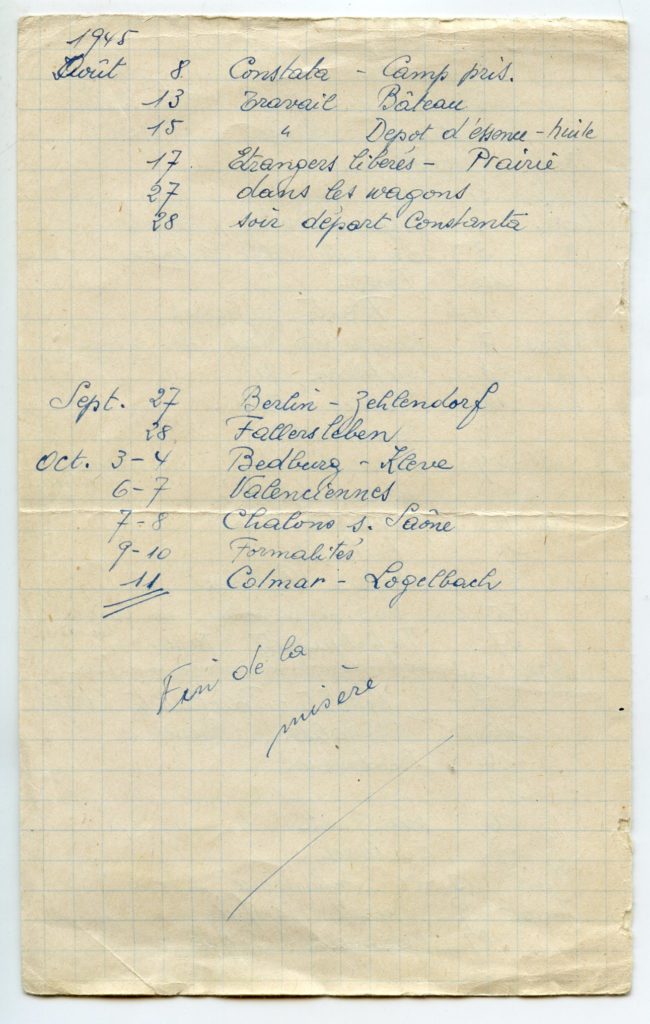 1945
Août 8 Constata - Camp pris.
13 Travail Bâteau
15 " Depot d'éssence - huile
17 Etrangers libérés - Prairie
27 dans les wagons
28 soir départ Constanta
Sept. 27 Berlin - Zehlendorf
28 Fallersleben
Oct. 3-4 Bedburg - Kleve
6-7 Valenciennes
7-8 Chalons s. Saône
9-10 Formalités
11 Colmar - Logelbach
Fin de la
misère